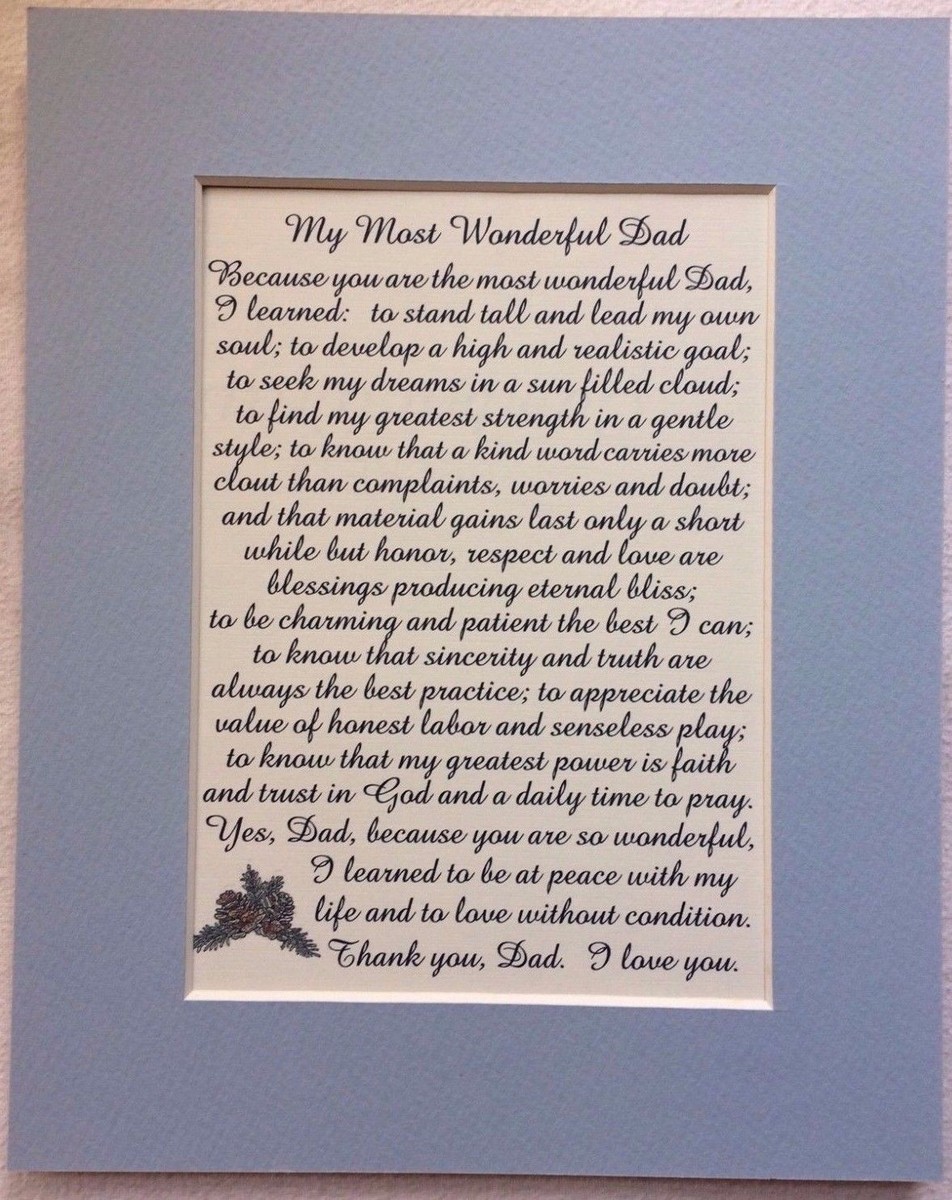 My Most Wonderful Dad
Because you are the most wonderful Dad,
I learned: to stand tall and lead my own
soul; to develop a high and realistic goal;
to seek my dreams in a sun filled cloud;
to find my greatest strength in a gentle
style; to know that a kind word carries more
clout than complaints, worries and doubt;
and that material gains last only a short
while but honor, respect and love are
blessings producing eternal bliss;
to be charming and patient the best I can;
to know that sincerity and truth are
always the best practice; to appreciate the
value of honest labor and senseless play;
to know that my greatest power is faith
and trust in God and a daily time to pray.
Yes, Dad, because you are so wonderful,
I learned to be at peace with my
life and to love without condition.
Thank you, Dad. I love you.